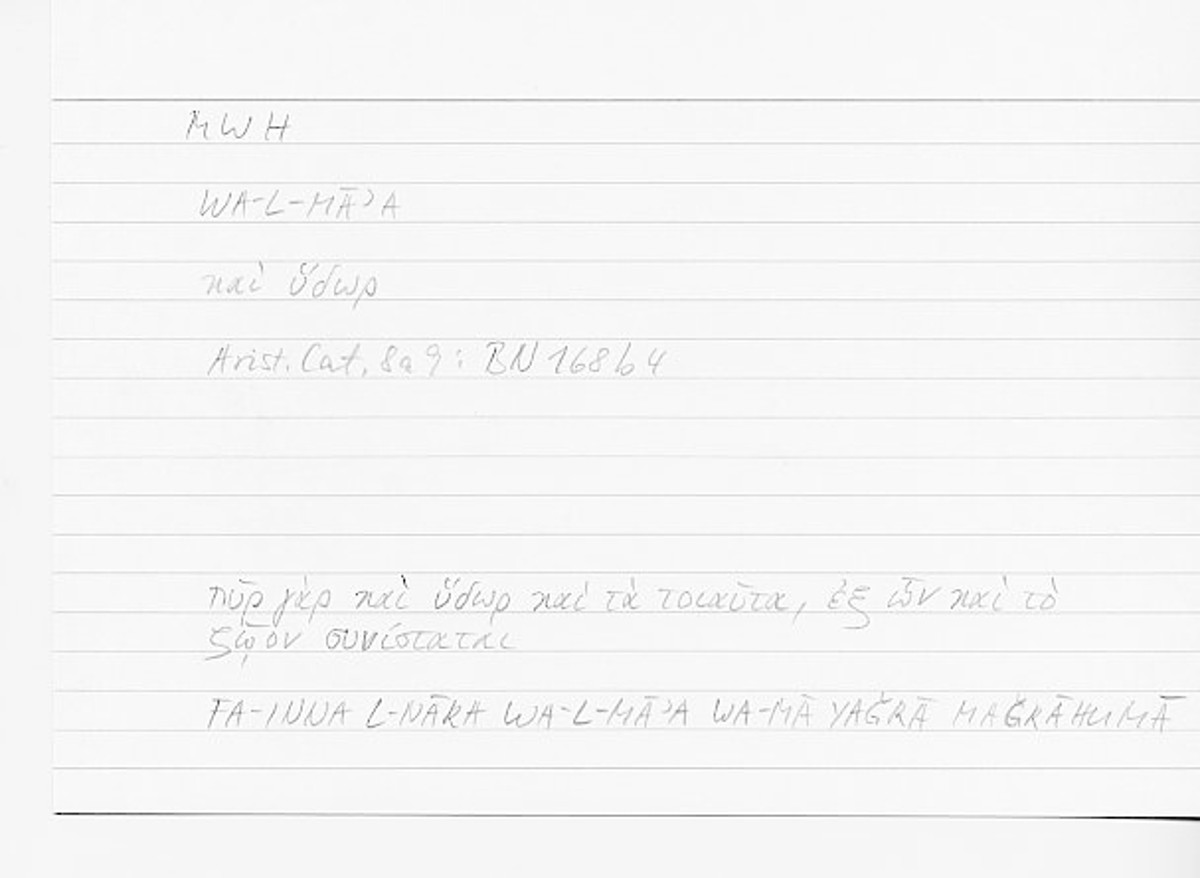 MWH
WA-L-MĀʾA
καὶ ὕδωρ
Arist. Cat, 8a9: BN 168b4
πῦρ γὰρ καὶ ὕδωρ καὶ τὰ τοιαῦτα, ἐξ ὧν καὶ τὸ
ζῷον συνίσταται
FA-INNA L-NĀRA WA-L-MĀʾA WA-MĀ YAǦRĀ MAǦRĀHUMĀ